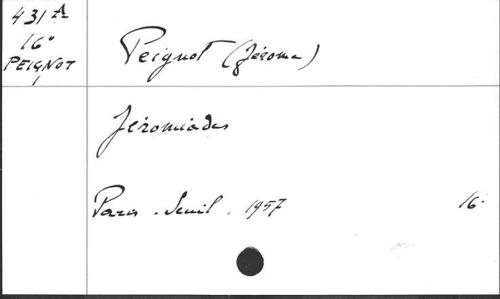 431 A
16°
PEIGNOT
1
Peignot (Jérome)
Jéromiades
Paris. Seuil. 1957 16°